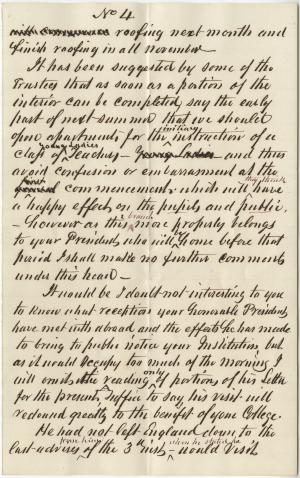 No 4
roofing next month and
finish roofing in all November
It has been suggested by some of the
Trustees that as soon as a portion of the
interior can be completed, say the early
part of next summer that we should
open apartments for the instruction of a
class of young Ladies Teachers - Young Ladies and thus
avoid confusion or embarrasment at the
commencement, which will have they think
a happy effect on the pupils and public.
- however as this branch more properly belongs
to your President who will home before that
period I shall make no further comments
under this head -
It would be I doubt not interesting to you
to know what reception your Honorable President
have met with abroad and the efforts he has made
to bring to public notice your Institution but
as it would occupy too much of the morning I
will omit the reading only of portions of his Letter
for the present, suffice to say his visit will
redound greatly to the benefit of your College.
He had not left England down to the
last advices from him of the 3d inst - when he stated he would visit